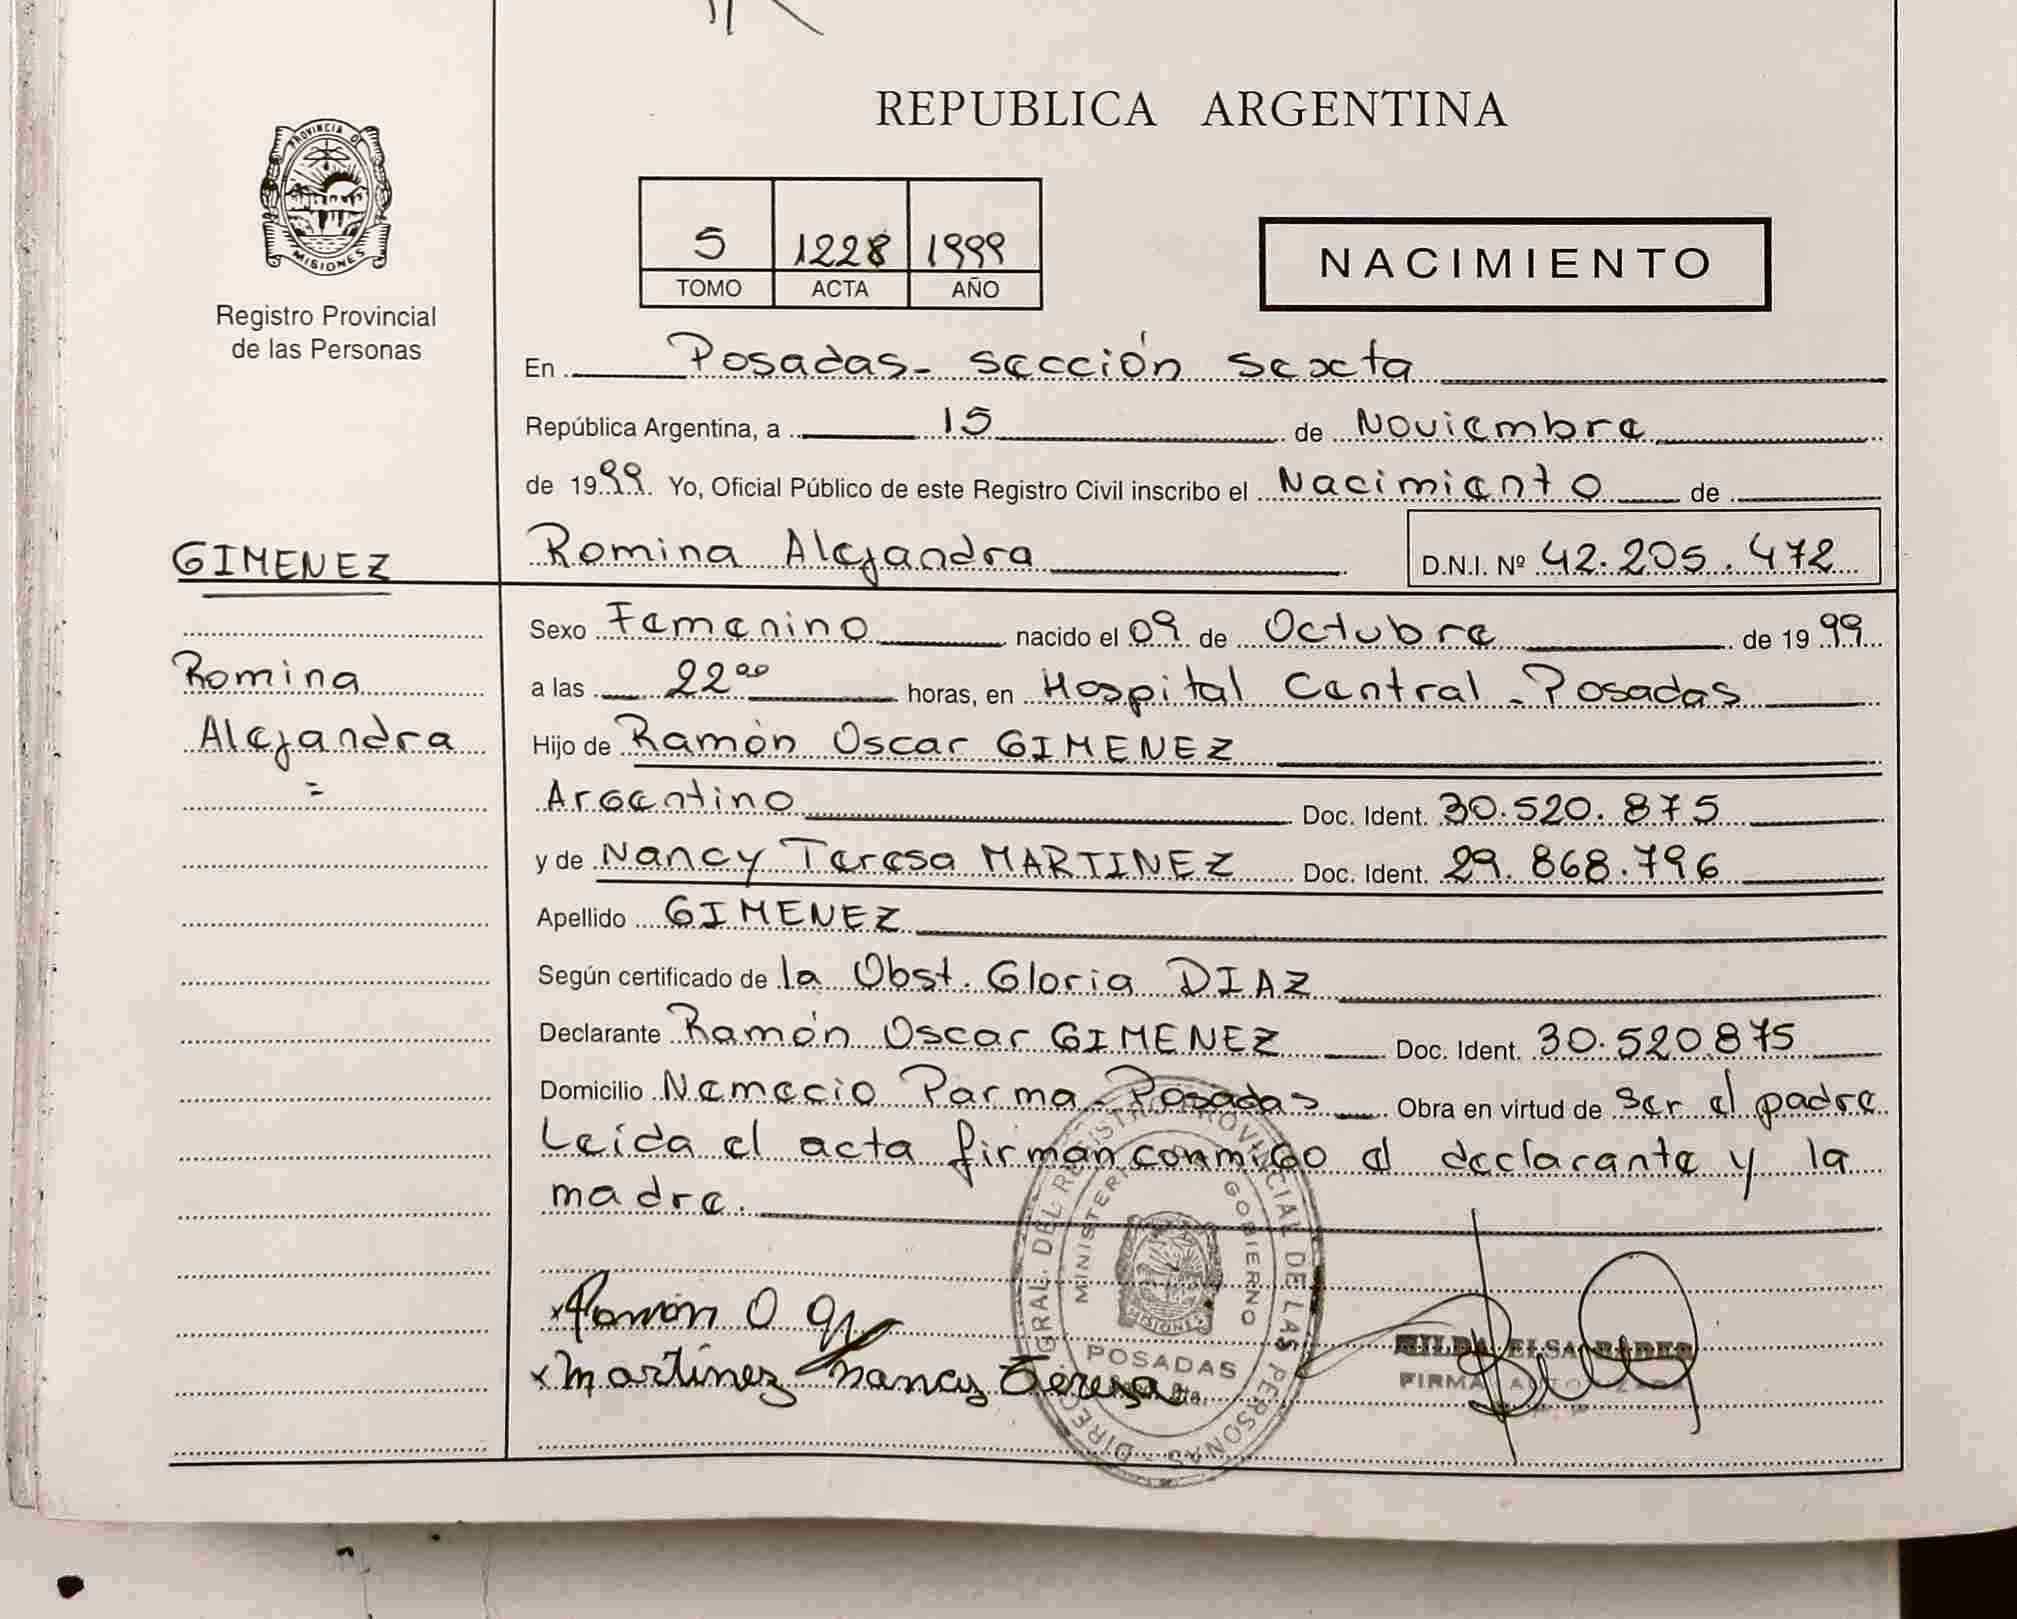 REPUBLICA ARGENTINA
PROVINCIA DE
MISIONES
Registro Provincial
de las Personas
5 1228 1999
TOMO ACTA AÑO
NACIMIENTO
En Posadas - sección sexta
República Argentina, a 15 de Noviembre
de 1999. Yo, Oficial Público de este Registro Civil inscribo el Nacimiento de
GIMENEZ
Romina Alejandra D.N.I. Nº 42.205.472
Sexo Femenino nacido el 09 de Octubre de 1999
Romina
a las 22⁰⁰ horas, en Hospital Central - Posadas
Alejandra
Hijo de Ramón Oscar GIMENEZ
Argentino Doc. Ident. 30.520.875
y de Nancy Teresa MARTINEZ Doc. Ident. 29.868.796
Apellido GIMENEZ
Según certificado de la Obst. Gloria DIAZ
Declarante Ramón Oscar GIMENEZ Doc. Ident. 30.520.875
Domicilio Nemecio Parma - Posadas Obra en virtud de ser el padre
Leída el acta firman conmigo el declarante y la
madre.
DIREC. GRAL. DEL REGISTRO PROVINCIAL DE LAS PERSONAS
MINISTERIO GOBIERNO
MISIONES
POSADAS
Ramón O
Martinez Nancy Teresa
ELSA
FIRMA AUTORIZADA